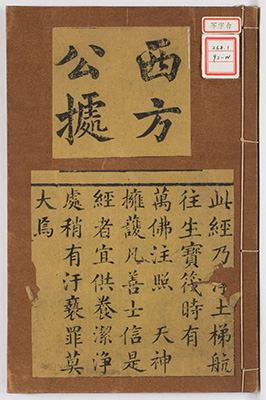 写字台
268.1
92-W
西方
公㨿
此經乃淨土梯航
往生寶筏時有
萬佛注照 天神
擁護凡善士信是
經者宜供養潔淨
處稍有汙褻罪莫
大焉